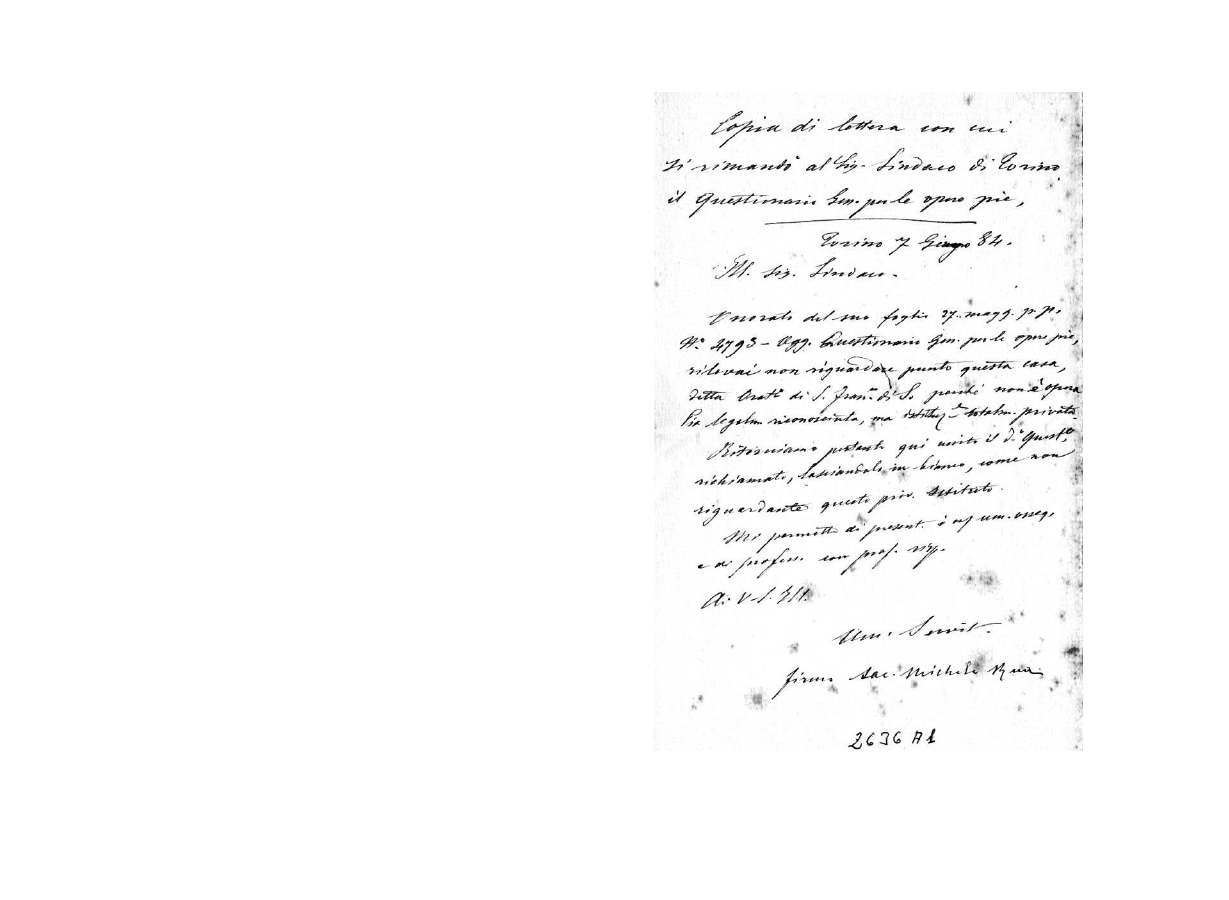 Copia di lettera con cui
si rimandò al Sig. Sindaco di Torino
il Questionario Gen. per le opere pie,
Torino 7 Giugno 84.
Ill. Sig. Sindaco.
Onorato del suo foglio 27. magg. p. p.
N.° 2793 - Ogg. Questionario Gen. per le opere pie,
rilevai non riguardare punto questa casa,
detta Orat.° di S. Fran.co di S. perché non è opera
Pia legalm. riconosciuta, ma totalm. privata.
Ritorniamo pertanto qui unito il d.° Quest.°
richiamato, lasciandolo in bianco, come non
riguardante questo priv. Istituto.
Mi permetto di present. i um. osseq.
e di profess. con prof. risp.
Di V. S. Ill.
Um. Servit.
firm. Sac. Michele Rua
2636 A1